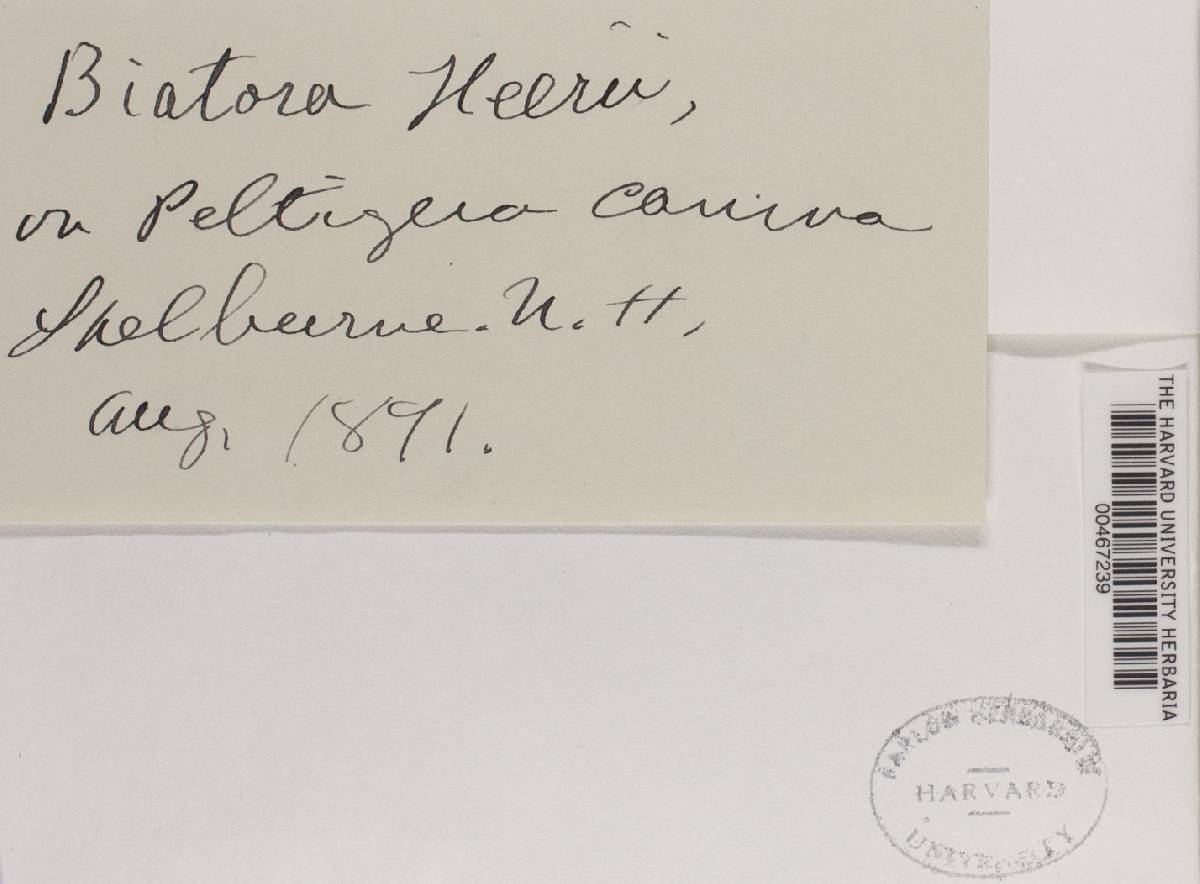 Biatora Heerii,
on Peltigera canina
Shelburne. N. H,
Aug. 1891.
THE HARVARD UNIVERSITY HERBARIA
00467239
FARLOW HERBARIUM
HARVARD
UNIVERSITY